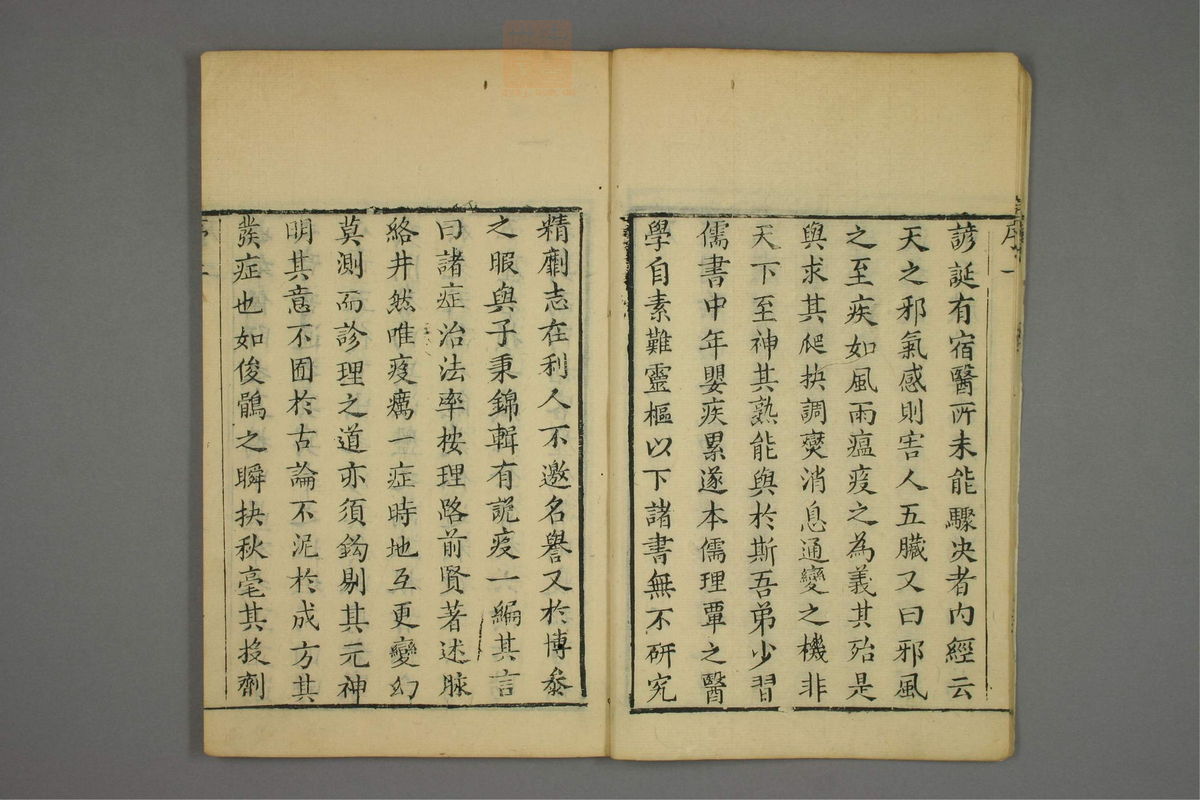 序 一
諺誕有宿醫所未能驟决者内經云
天之邪氣感則害人五臟又曰邪風
之至疾如風雨瘟疫之為義其殆是
與求其爬抉調爕消息通變之機非
天下至神其熟能與於斯吾弟少習
儒書中年嬰疾累遂本儒理覃之醫
學自素難靈樞以下諸書無不研究
精劘志在利人不邀名譽又於博叅
之暇與子秉錦輯有說疫一編其言
曰諸症治法率按理路前賢著述脉
絡井然唯疫癘一症時地互更變幻
莫測而診理之道亦須鈎剔其元神
明其意不囿於古論不泥於成方其
發症也如俊鶻之瞬抉秋毫其投劑